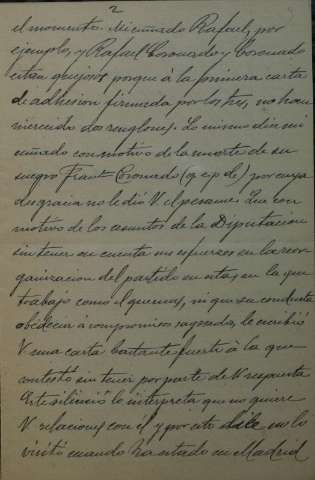 2
el momento. Mi cuñado Rafael, por
ejemplo, y Rafael Coronado y Coronado
estan quejosos porque à la primera carta
de adhesion firmada por los tres, no han
merecido dos renglones. Lo mismo dice mi
cuñado con motivo de la muerte de su
suegro Franco Coronado (q e p d) por cuya
desgracia no le dió V. el pesame. Que con
motivo de los asuntos de la Diputacion
sin tener en cuenta sus esfuerzos en la reor-
ganizacion del partido en esta, en la que
trabajó como el que mas, ni que su conducta
obedecia à compromisos sagrados, le escribió
V una carta bastante fuerte à la que
contestó sin tener por parte de V respuesta
Este silencio lo interpreta que no quiere
V relaciones con él y por esto dice no lo
visitó cuando ha estado en Madrid